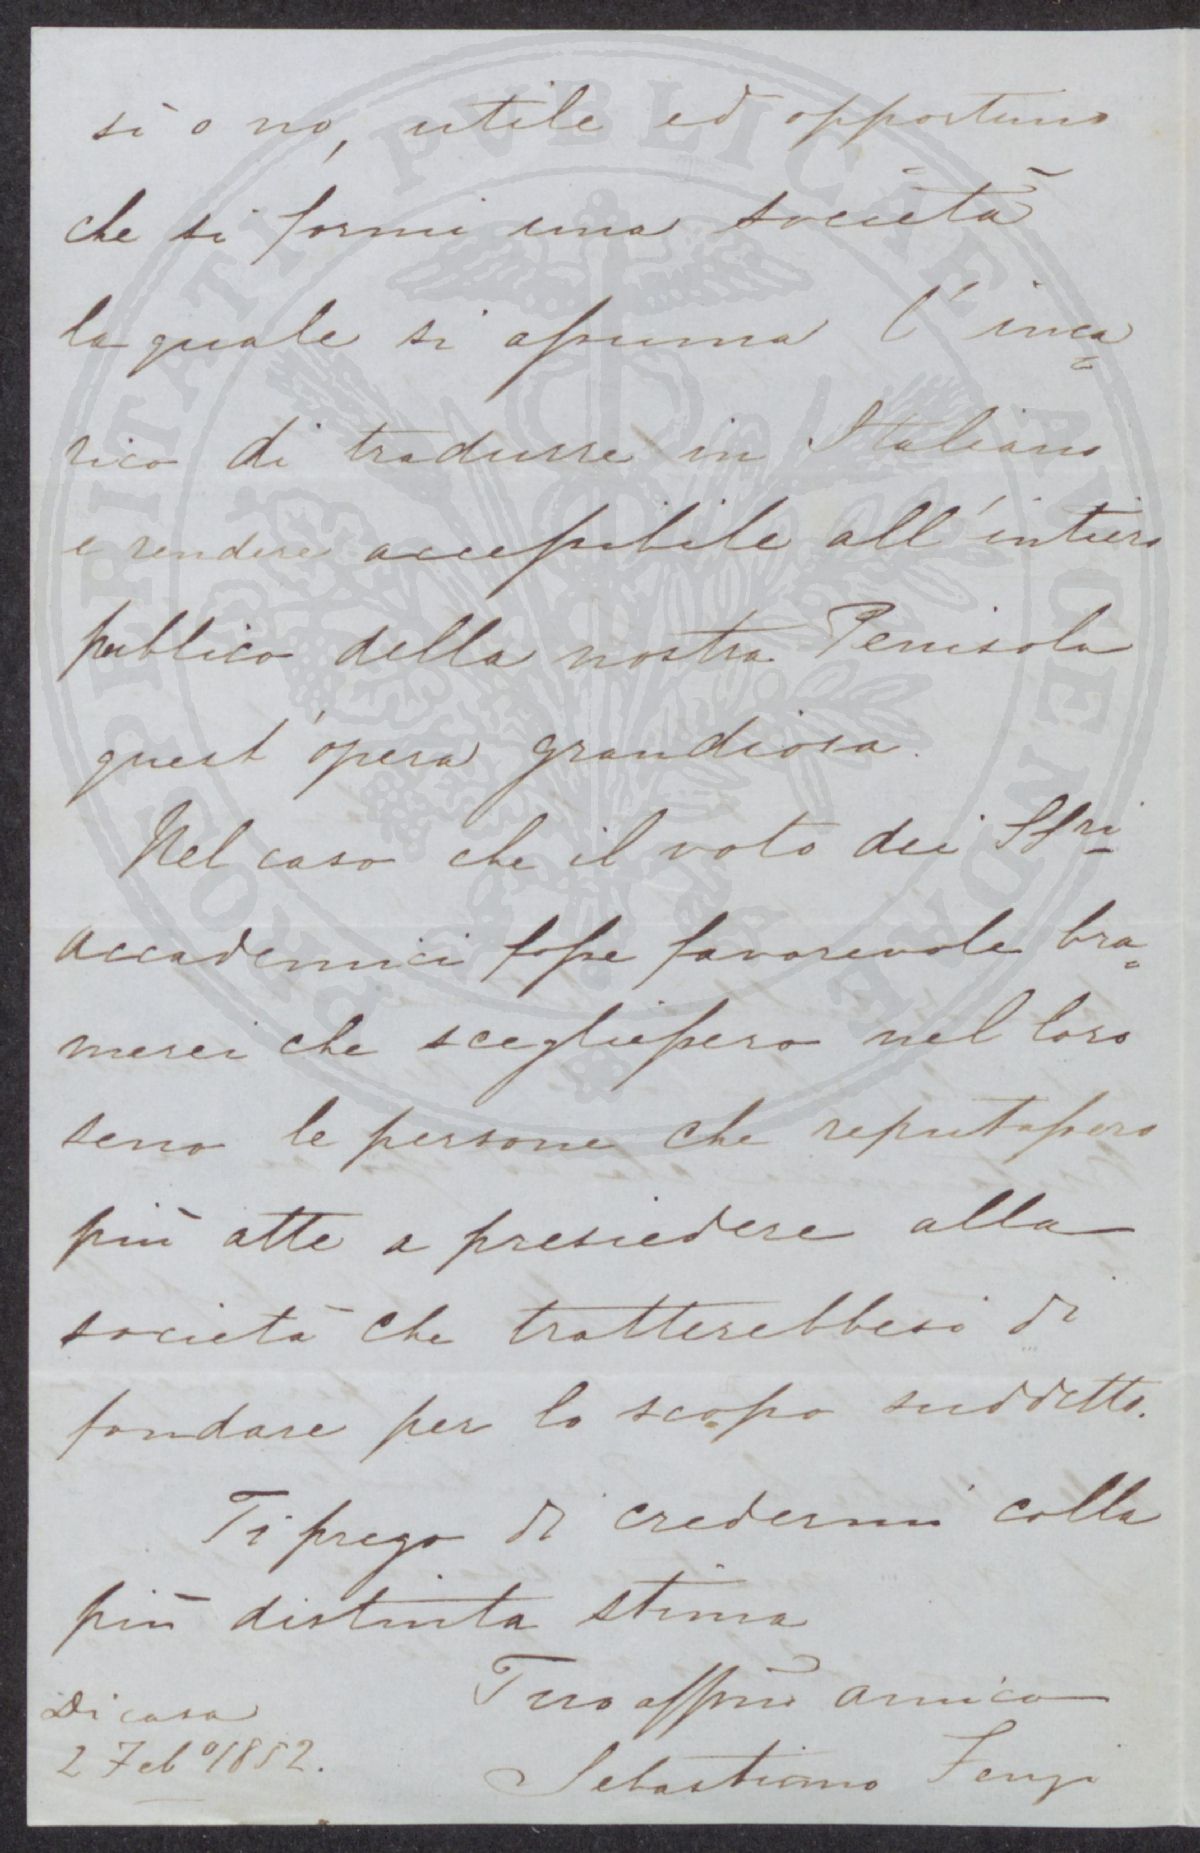 sì o no, utile ed opportuno
che si formi una società
la quale si assuma l'inca=
rico di tradurre in Italiano
e rendere accessibile all'intiero
pubblico della nostra Penisola
quest'opera grandiosa.
Nel caso che il voto dei SSri
accademici fosse favorevole bra=
merei che scegliessero nel loro
seno le persone che reputassero
più atte a presiedere alla
società che tratterebbesi di
fondare per lo scopo suddetto.
Ti prego di credermi colla
più distinta stima
Tuo affmo amico
Sebastiano Fenzi
Di casa
2 Febo 1852.
PROSPERITATI PVBLICAE AVGENDAE